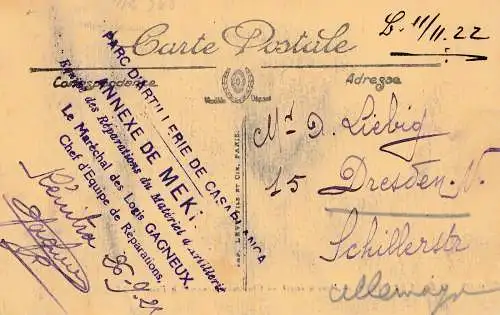 L. 11/11. 22
Carte Postale
Correspondance
Adresse
PARC D'ARTILLERIE DE CASABLANCA
ANNEXE DE MEKi
Equipe des Réparations du Matériel d'artillerie
Le Maréchal des Logis GAGNEUX.
Chef d'Equipe de Réparations.
Kénitra
IMP. LEVEILLE ET CIE, PARIS.
D. Liebig
15 Dresden N.
Schillerstr
Allemagne